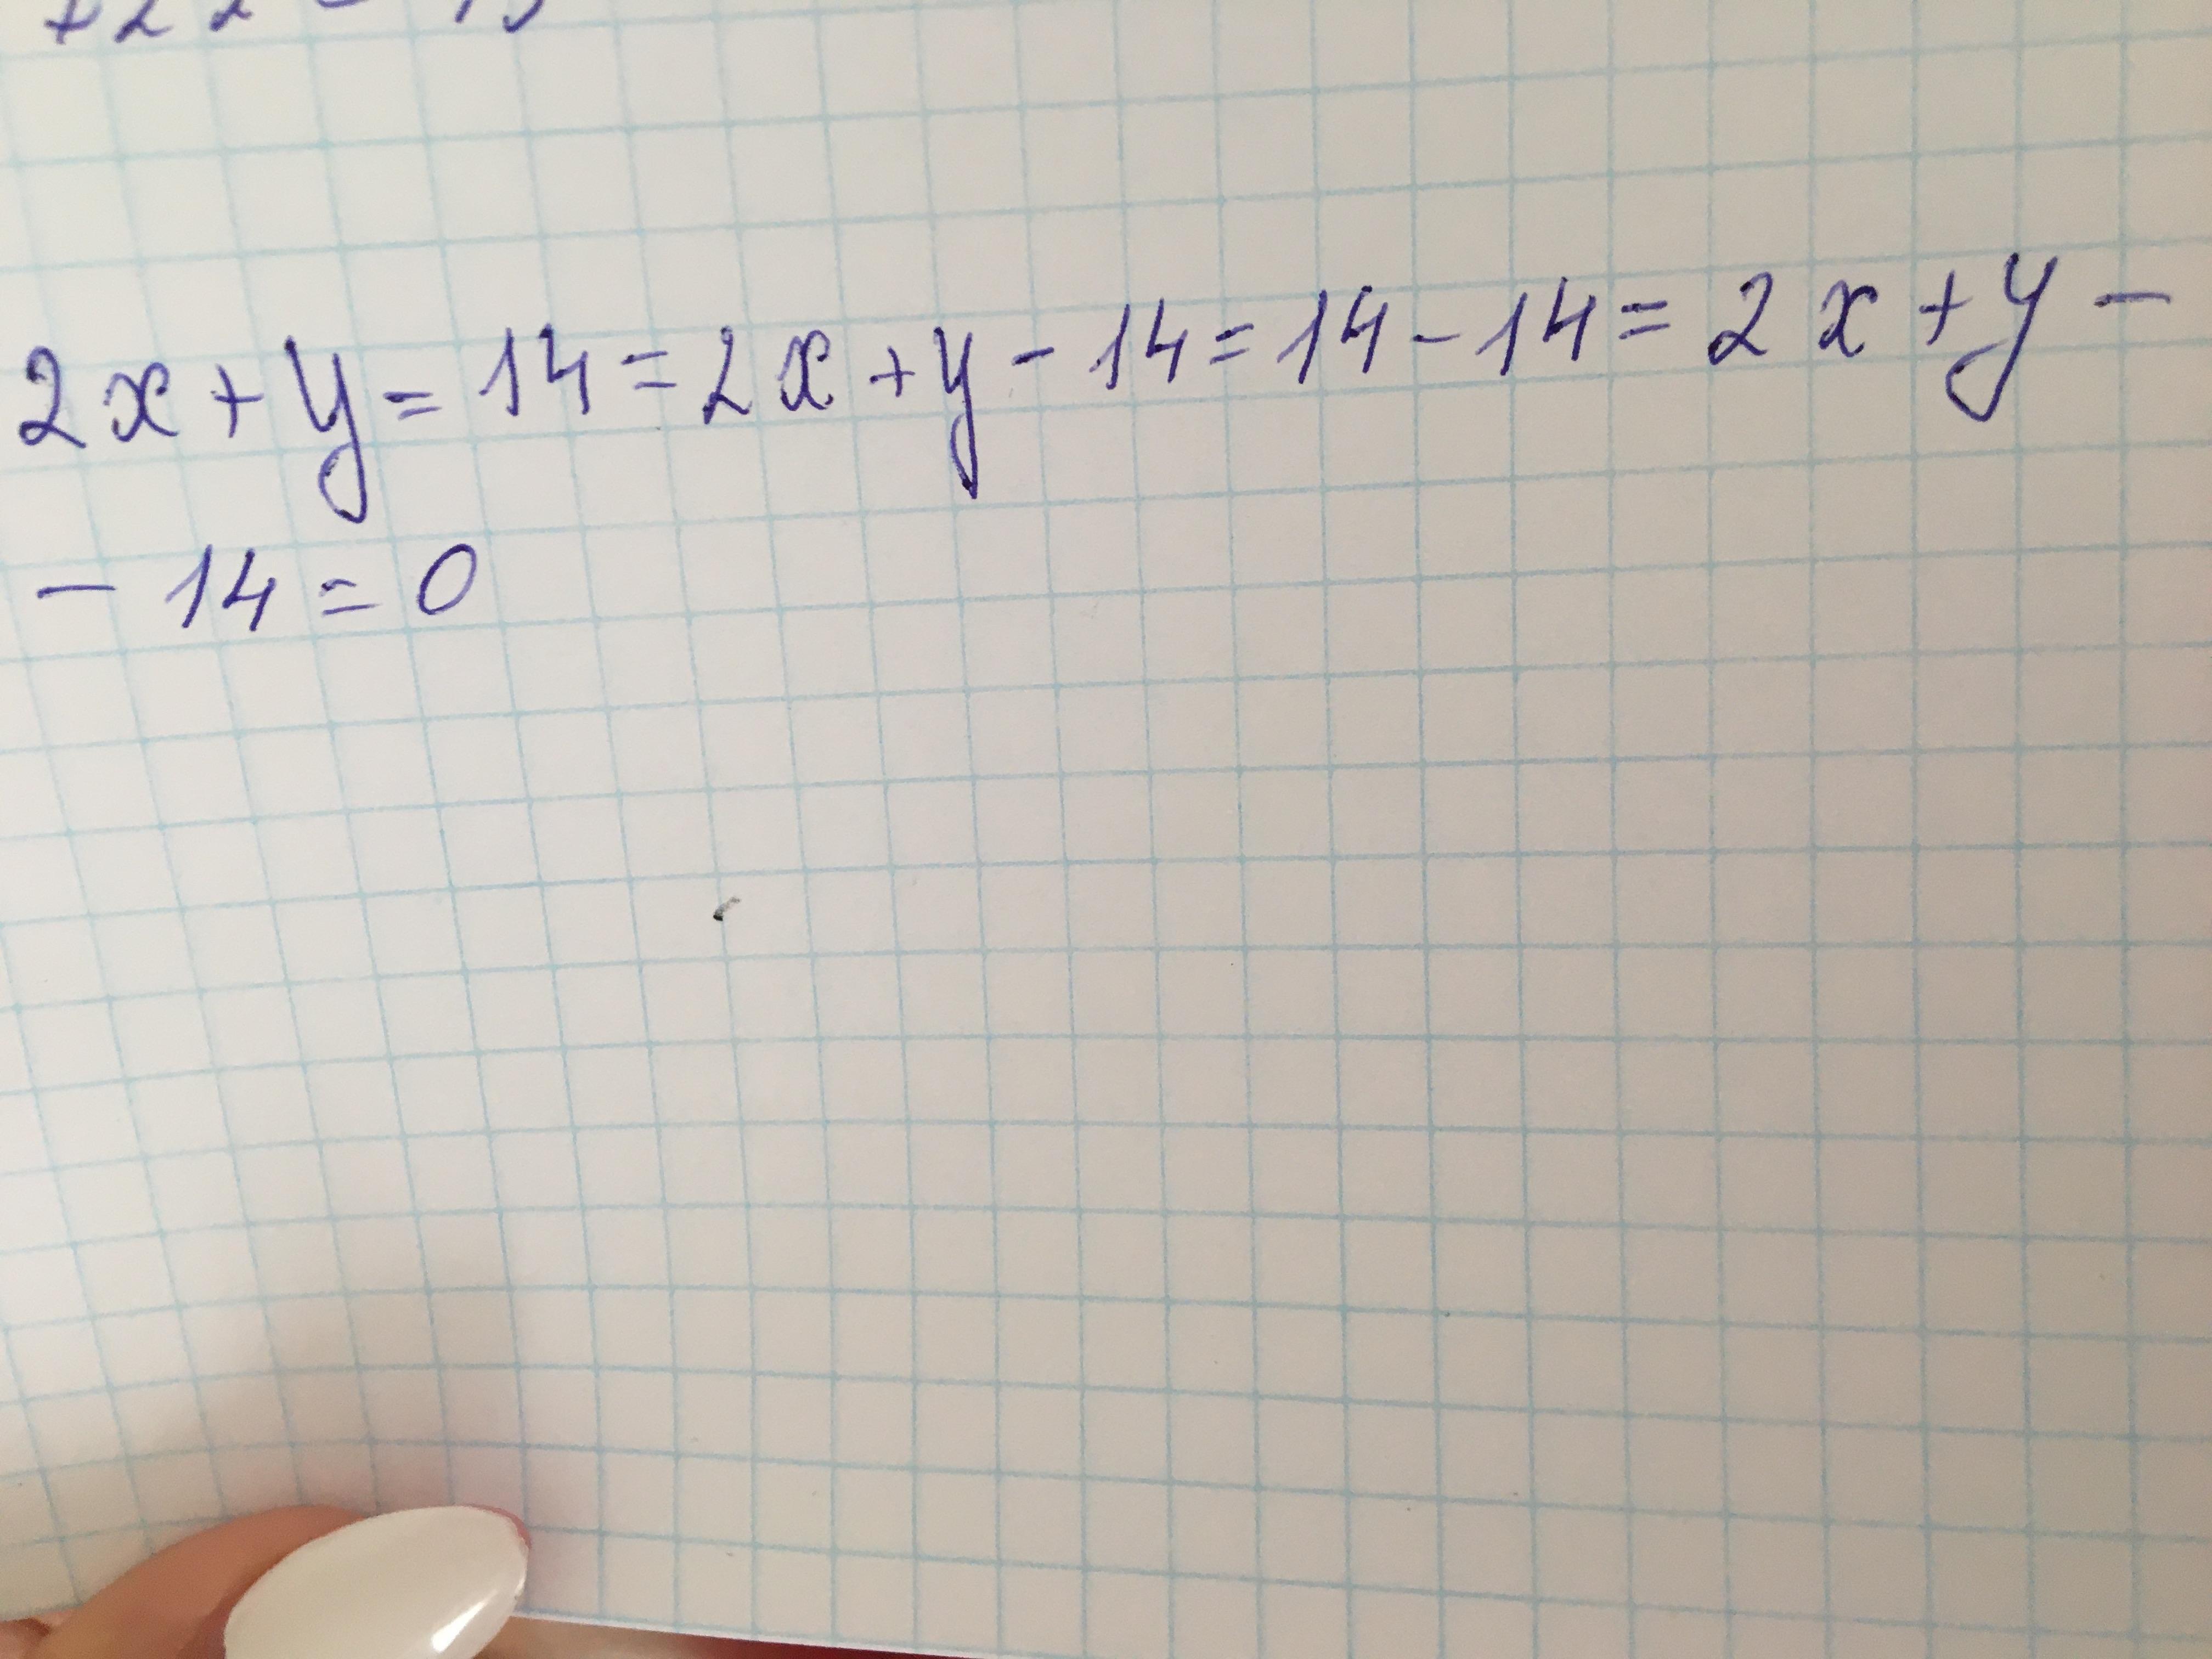 2x + y = 14 = 2x + y - 14 = 14 - 14 = 2x + y -
- 14 = 0